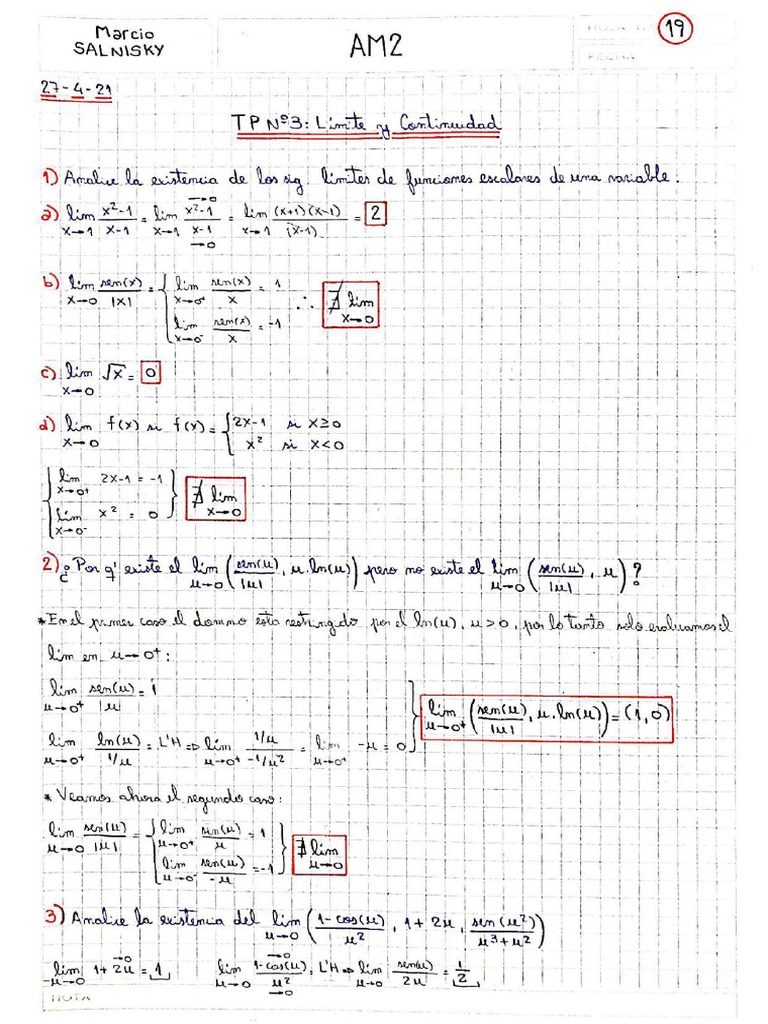 Marcio
SALNISKY
AM2
19
FECHA
27-4-21
TP Nº3: Límite y Continuidad
1) Analice la existencia de los sig. límites de funciones escalares de una variable.
a) lim x→1 (x²-1)/(x-1) = lim x→1 (x²-1 →0)/(x-1 →0) = lim x→1 (x+1)(x-1)/(x-1) = 2
b) lim x→0 sen(x)/|x| = { lim x→0⁺ sen(x)/x = 1
lim x→0⁻ sen(x)/x = -1
∴ ∄ lim x→0
c) lim x→0 √x = 0
d) lim x→0 f(x) si f(x) = { 2x-1 si x≥0
x² si x<0
{ lim x→0⁺ 2x-1 = -1
lim x→0⁻ x² = 0 }
∄ lim x→0
2) ¿Por q' existe el lim u→0 (sen(u)/|u|, u.ln(u)) pero no existe el lim u→0 (sen(u)/|u|, u)?
* En el primer caso el dominio esta restringido por el ln(u), u>0, por lo tanto solo evaluamos el
lim en u→0⁺:
lim u→0⁺ sen(u)/u = 1
lim u→0⁺ ln(u)/(1/u) = L'H ⇒ lim u→0⁺ (1/u)/(-1/u²) = lim u→0⁺ -u = 0
} lim u→0⁺ (sen(u)/|u|, u.ln(u)) = (1,0)
* Veamos ahora el segundo caso:
lim u→0 sen(u)/|u| = { lim u→0⁺ sen(u)/u = 1
lim u→0⁻ sen(u)/-u = -1 }
∄ lim u→0
3) Analice la existencia del lim u→0 (1-cos(u)/u², 1+2u, sen(u²)/(u³+u²))
lim u→0 1+2u →0 = 1 lim u→0 (1-cos(u) →0)/(u² →0) = L'H ⇒ lim u→0 sen(u)/2u = 1/2
NOTA